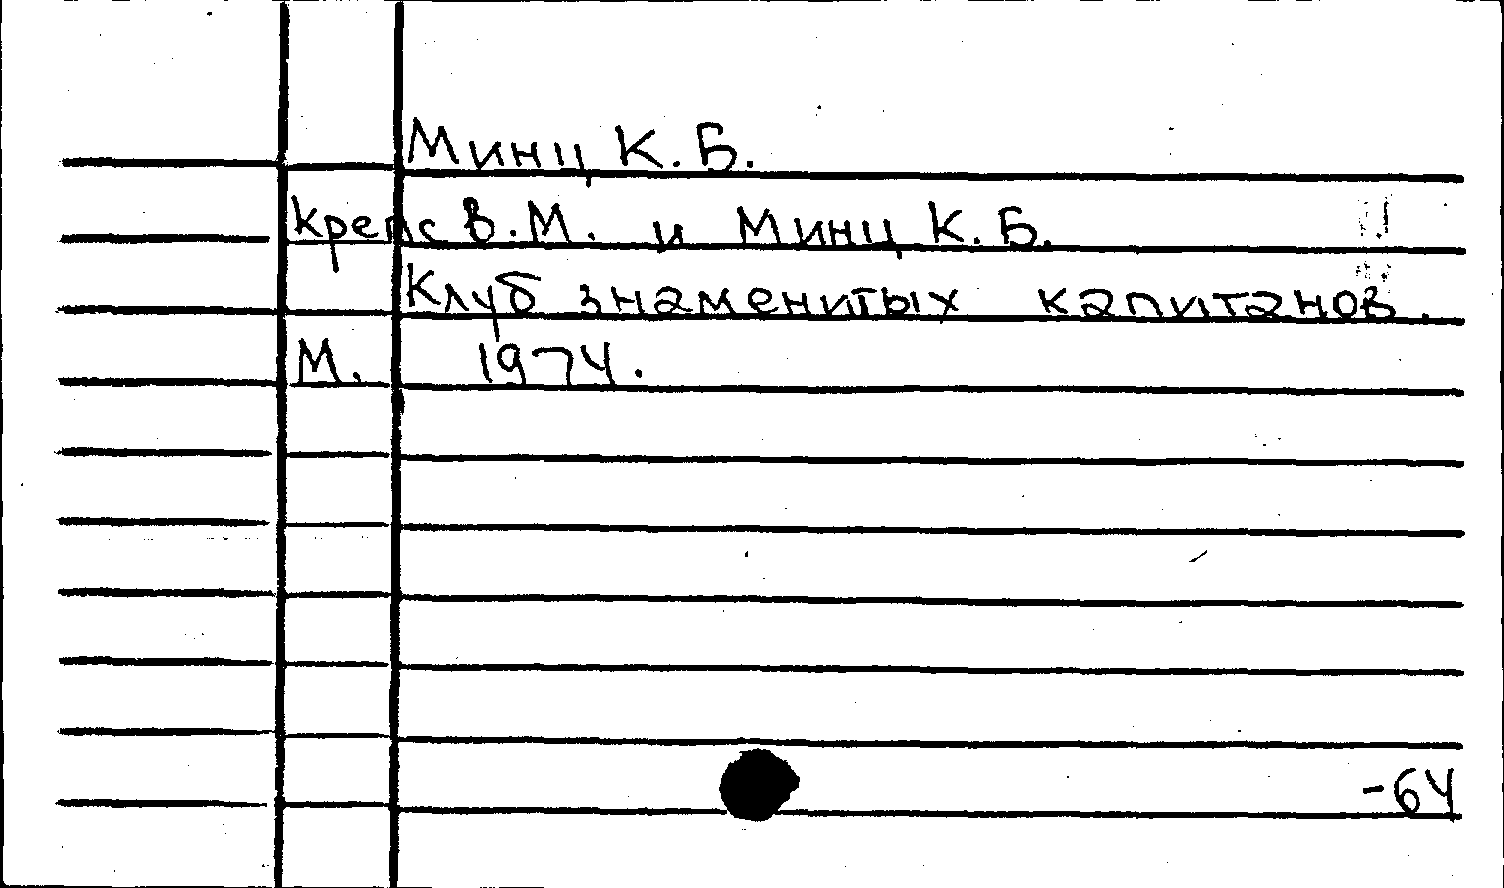 Минц К. Б.
Крепс В. М. и Минц К. Б.
Клуб знаменитых капитанов.
М. 1974.
-64